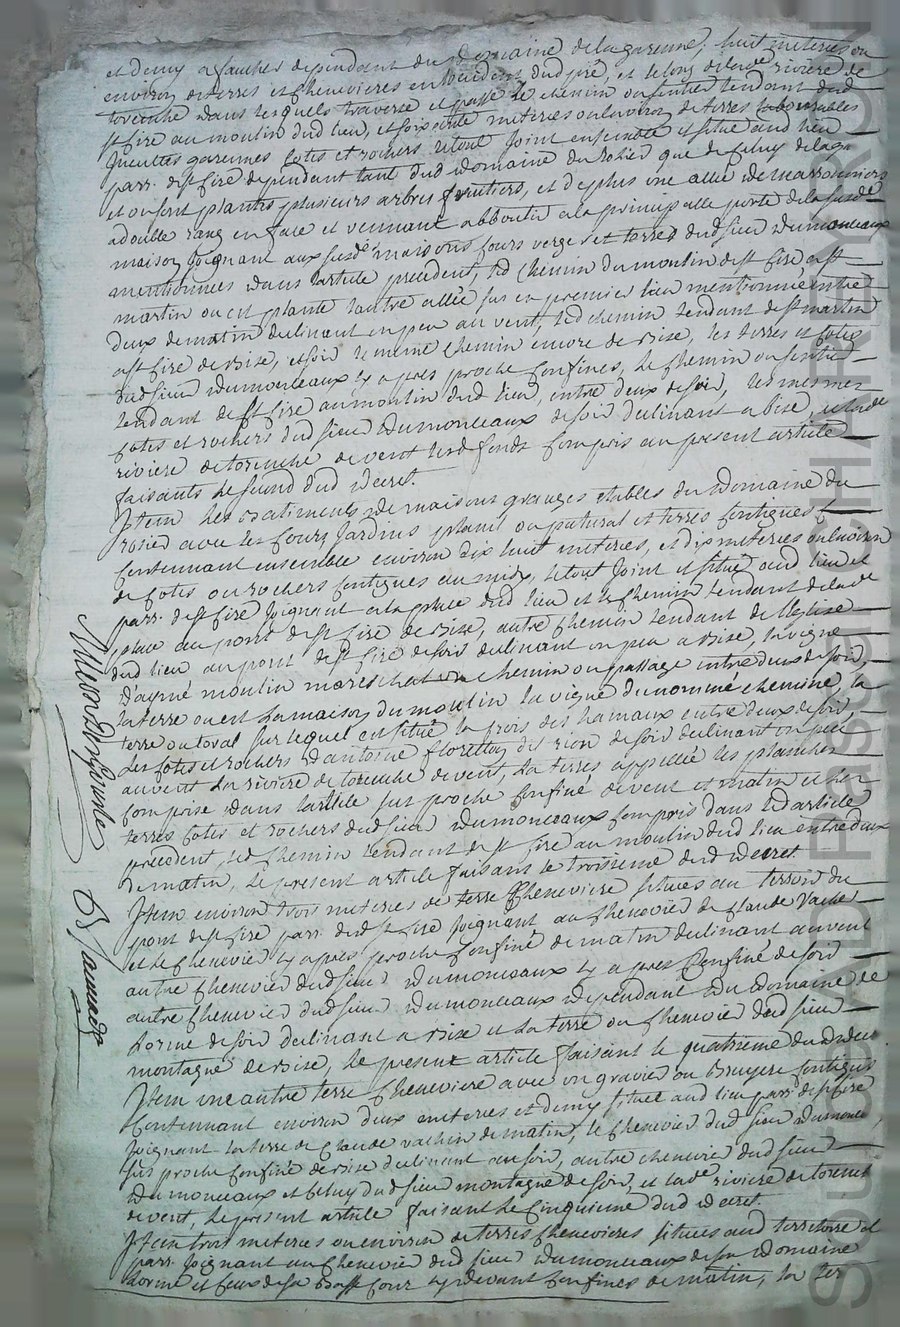 et demy a faucher dependant du Domaine de la garenne, huit meteries ou
environ de terres et chenevieres en dud pré, et le long de lad riviere de
torenche dans lesquels traverse et passe le chemin ou sentier tendant dud
st fire au moulin dud lieu, et soixante meteries ou environ de terres labourables
garennes cotes et rochers le tout joint ensemble et situé aud lieu
parr. de st fire dependant tant dud Domaine du Rosier que de celuy de la ga
et ou sont plantés plusieurs arbres fruitiers, et de plus une allée de marroniers
a double rang en face et venant abboutir a la principalle porte de la susd
maison joignant aux susd maisons cours verger et terres dud sieur Dumonceaux
mentionnées dans l'article precedent, led chemin du moulin de st fire a st
martin ou est planté l'autre allée sus en premier lieu mentionnée entre
deux de matin declinant un peu au vent, led chemin tendant de st martin
a st fire de bise, et soir le meme chemin encore de bise, les terres et cotes
dud sieur Dumonceaux cy apres proche confines, le chemin ou sentier
tendant de st fire au moulin dud lieu, entre deux de soir, les mesmes
cotes et rochers dud sieur Dumonceaux de soir declinant a bise, et lad
riviere de torenche de vent lesd fonds compris au present article
faisants le second dud decret.
Item les batiments de maisons granges etables du Domaine du
rosier avec les cours, jardins, plamé ou patural et terres contigues
contennant ensemble environ dix huit meteries, et dix meteries ou environ
de cotes ou rochers contigues au midy, le tout joint et situé aud lieu et
parr. de st fire joignant a la place dud lieu et le chemin tendant de lad
place au pont de st fire de bise, autre chemin tendant de l'Eglise
dud lieu au pont de st fire de soir declinant un peu a bise, la vigne
d'aymé moulin mareschal un chemin ou passage entre deux de soir,
la terre ou est la maison du moulin la vigne du nommé chemine, la
terre ou toral sur lequel est situé la croix des hamaux entre deux de soir,
les cotes et rochers d'antoine floretton dit rion de soir declinant un peu
au vent la riviere de torenche de vent, la terres appellée les planches
comprise dans l'article sus proche confiné de vent et matin et les
terres cotes et rochers dud sieur Dumonceaux compris dans led article
precedent, led chemin tendant de st fire au moulin dud lieu entre deux
de matin, le present article faisant le troisieme dud decret.
Item environ trois meteries de terre cheneviere situées au terroir du
pont de st fire parr. dud st fire joignant au chenevier de Claude Vachet
et le chenevier cy apres proche confiné de matin declinant au vent
autre chenevier dud sieur Dumonceaux cy apres confiné de soir
autre chenevier dud sieur Dumonceaux dependant du Domaine de
lorme de soir declinant a bise et la terre ou chenevier dud sieur
montagne de bise, le present article faisant le quatrieme dud decret
Item une autre terre cheneviere avec un gravier ou bruyere contigus
contennant environ deux meteries et demy, situé aud lieu parr. de st fire
joignant la terre de Claude vachin de matin, le chenevier dud sieur Dumonceaux,
sus proche confiné de bise declinant au soir, autre chenevier dud sieur
Dumonceaux et celuy dud sieur montagne de soir, et lad riviere de torenche
de vent, le present article faisant le cinquieme dud decret.
Item trois meteries ou environ de terres chenevieres situées aud territoire et
parr. joignant au chenevier dud sieur Dumonceaux de son Domaine
lorme et ceux de sa basse cour cy devant confinés de matin, la ter
Source AD Passerl CHAREYRON